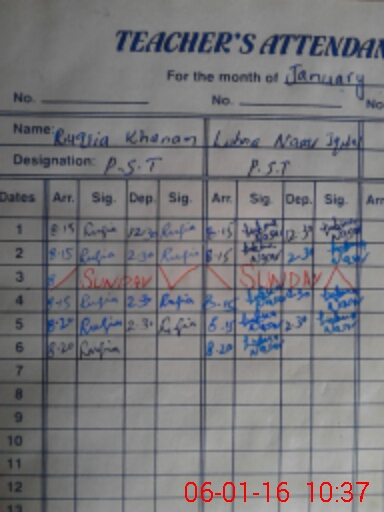 TEACHER'S ATTENDAN
For the month of January
No. No. No
Name: Ruqsia Khanam Lubna Naaz
Designation: P.S.T P.S.T
Dates Arr. Sig. Dep. Sig. Arr. Sig. Dep. Sig. Arr
1 8-15 Ruqsia 12-30 Ruqsia 8-15 12-30
2 8-15 Ruqsia 2-30 Ruqsia 8-15 2-30
3 SUNDAY SUNDAY
4 8-15 Ruqsia 2-30 Ruqsia 8-15 2-30
5 8-20 Ruqsia 2-30 Ruqsia 8-15 2-30
6 8-20 Ruqsia 8-20
7
8
9
10
11
12
13
06-01-16 10:37